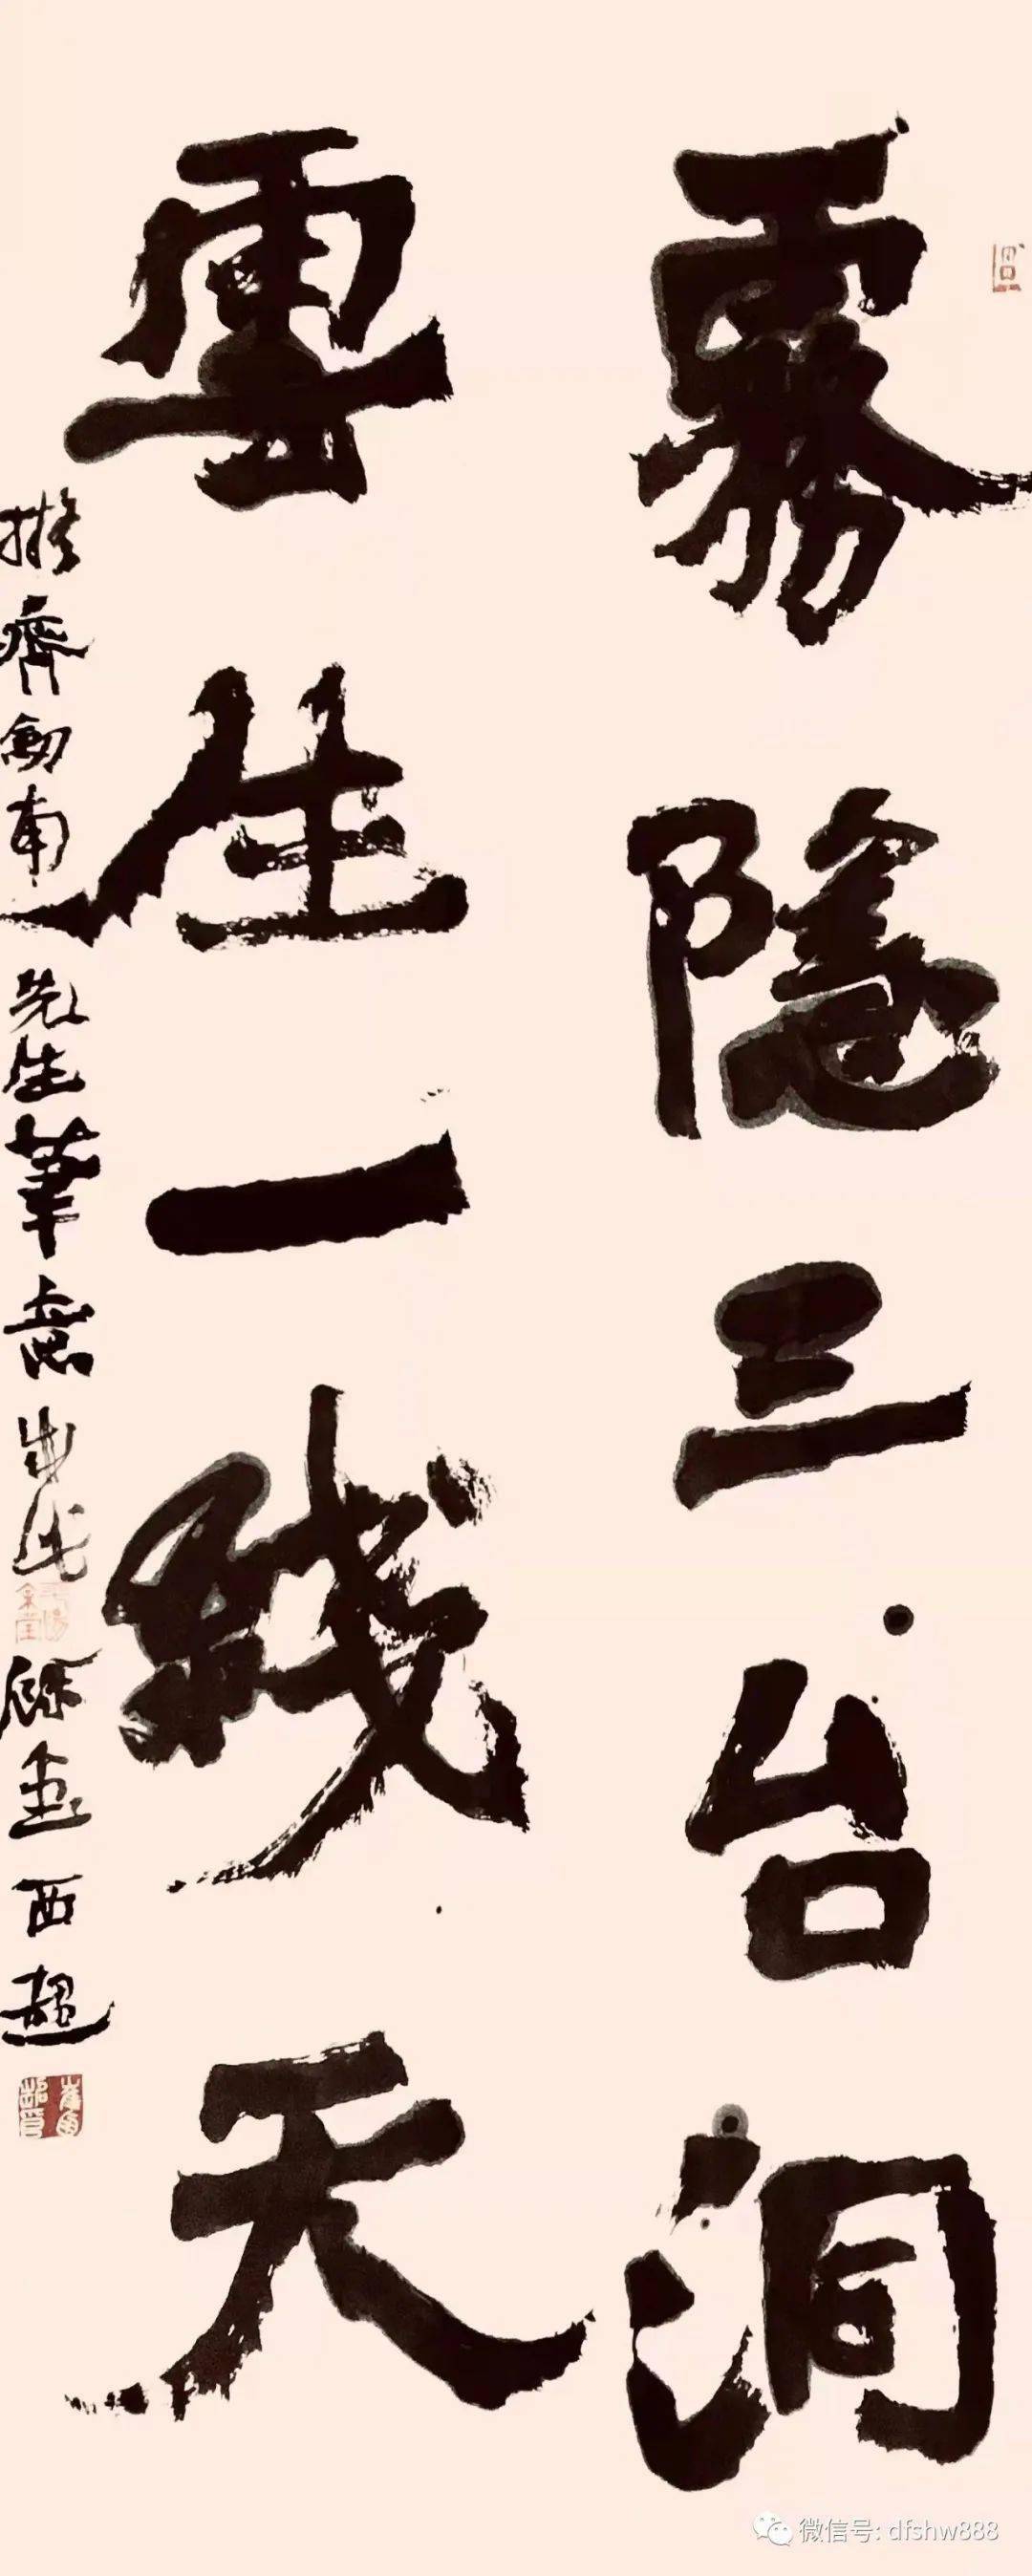 霧隱三台洞
雲生一綫天
擬齊劍南先生筆意
西超
微信号: dfshw888